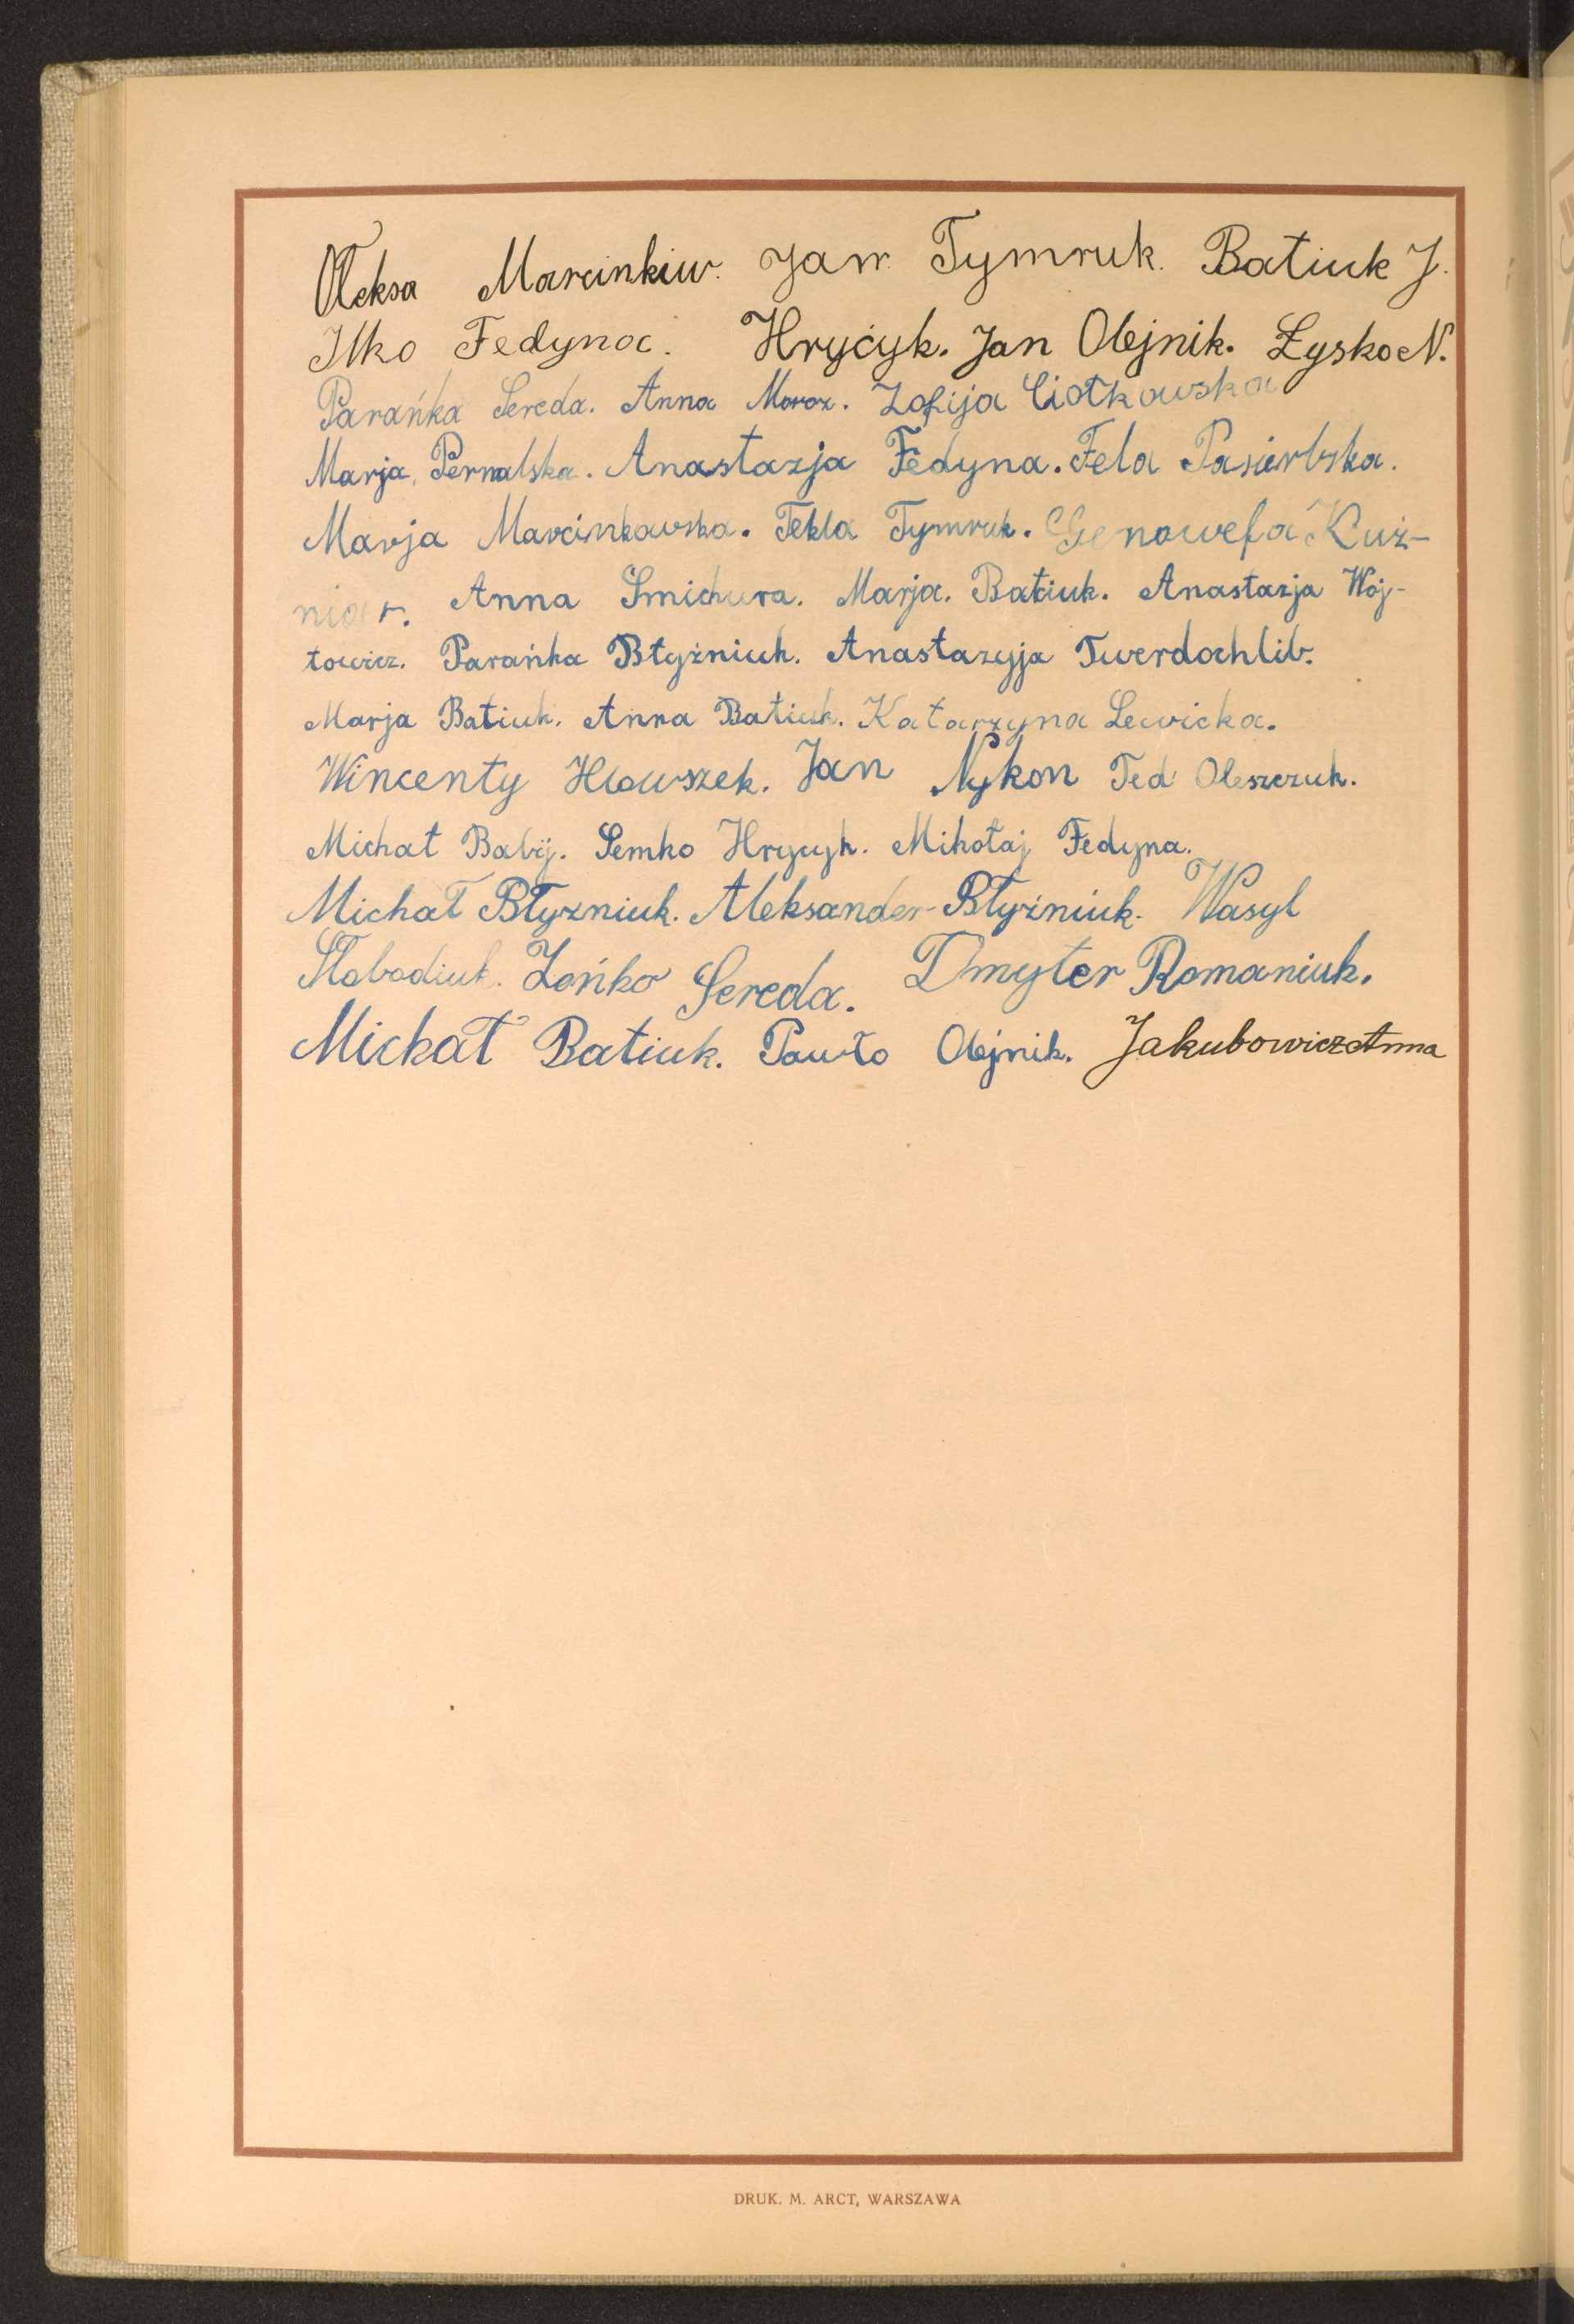 Oleksa Marcinkiw. Jan Tymruk. Batiuk J.
Ilko Fedyna. Hryćyk. Jan Olejnik. Łysko N.
Parańka Sereda. Anna Moroz. Zofija Ciołkowska
Marja Pernalska. Anastazja Fedyna. Fela Pasierbska.
Marja Marcinkowska. Tekla Tymruk. Genowefa Kuź-
niar. Anna Smichura. Marja. Batiuk. Anastazja Woj-
towicz. Parańka Błyźniuk. Anastazyja Twerdochlib.
Marja Batiuk. Anna Batiuk. Katarzyna Lewicka.
Wincenty Hlowszek. Jan Nykon Ted Oleszczuk.
Michał Babij. Semko Hrycyk. Mikołaj Fedyna.
Michał Błyzniuk. Aleksander Błyźniuk. Wasyl
Słobodiuk. Zońko Sereda. Dmyter Romaniuk.
Michał Batiuk. Pawło Olejnik. Jakubowicz Anna
DRUK. M. ARCT, WARSZAWA